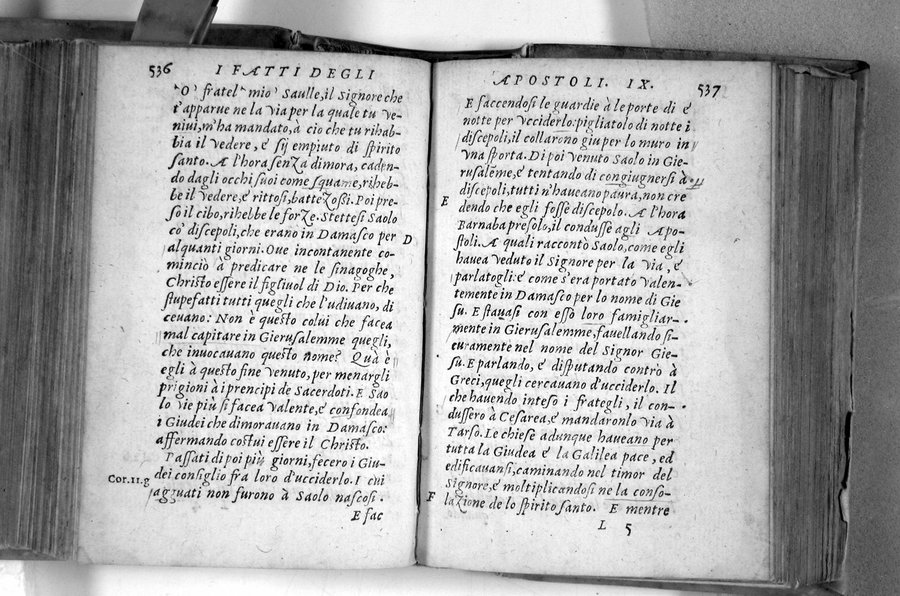 536 I FATTI DEGLI
O' fratel mio Saulle, il Signore che
t'apparue ne la via per la quale tu ve-
niui, m'ha mandato, à cio che tu rihab-
bia il vedere, e' sij empiuto di spirito
santo. A l'hora senza dimora, caden-
do dagli occhi suoi come squame, riheb-
be il vedere, e' rittosi, battezossi. Poi pre-
so il cibo, rihebbe le forze. Stettesi Saolo
co' discepoli, che erano in Damasco per D
alquanti giorni. Oue incontanente co-
minciò à predicare ne le sinagoghe,
Christo essere il figliuol di Dio. Per che
stupefatti tutti quegli che l'udiuano, di
ceuano: Non è questo colui che facea
mal capitare in Gierusalemme quegli,
che inuocauano questo nome? Quà è
egli à questo fine venuto, per menargli
prigioni à i prencipi de Sacerdoti. E Sao
lo vie più si facea valente, e' confondea
i Giudei che dimorauano in Damasco:
affermando costui essere il Christo.
Passati di poi più giorni, fecero i Giu-
Cor.11.g dei consiglio fra loro d'ucciderlo. I cui
agguati non furono à Saolo nascosi.
E fac
APOSTOLI. IX. 537
E faccendosi le guardie à le porte di e'
notte per vcciderlo: pigliatolo di notte i
discepoli, il collarono giu per lo muro in
vna sporta. Di poi venuto Saolo in Gie-
rusalēme, e' tentando di congiugnersi à
discepoli, tutti n'haueano paura, non cre
E dendo che egli fosse discepolo. A l'hora
Barnaba presolo, il condusse agli Apo-
stoli. A quali raccontò Saolo, come egli
hauea veduto il Signore per la via, e'
parlatogli: e' come s'era portato Valen-
temente in Damasco per lo nome di Gie
su. E stauasi con esso loro famigliar-
mente in Gierusalemme, fauellando si-
curamente nel nome del Signor Gie-
su. E parlando, e' disputando contro à
Greci, quegli cercauano d'ucciderlo. Il
che hauendo inteso i frategli, il con-
dussero à Cesarea, e' mandaronlo via à
Tarso. Le chiese adunque haueano per
tutta la Giudea e' la Galilea pace, ed
edificauansi, caminando nel timor del
Signore, e' moltiplicandosi ne la conso-
F lazione de lo spirito santo. E mentre
L 5